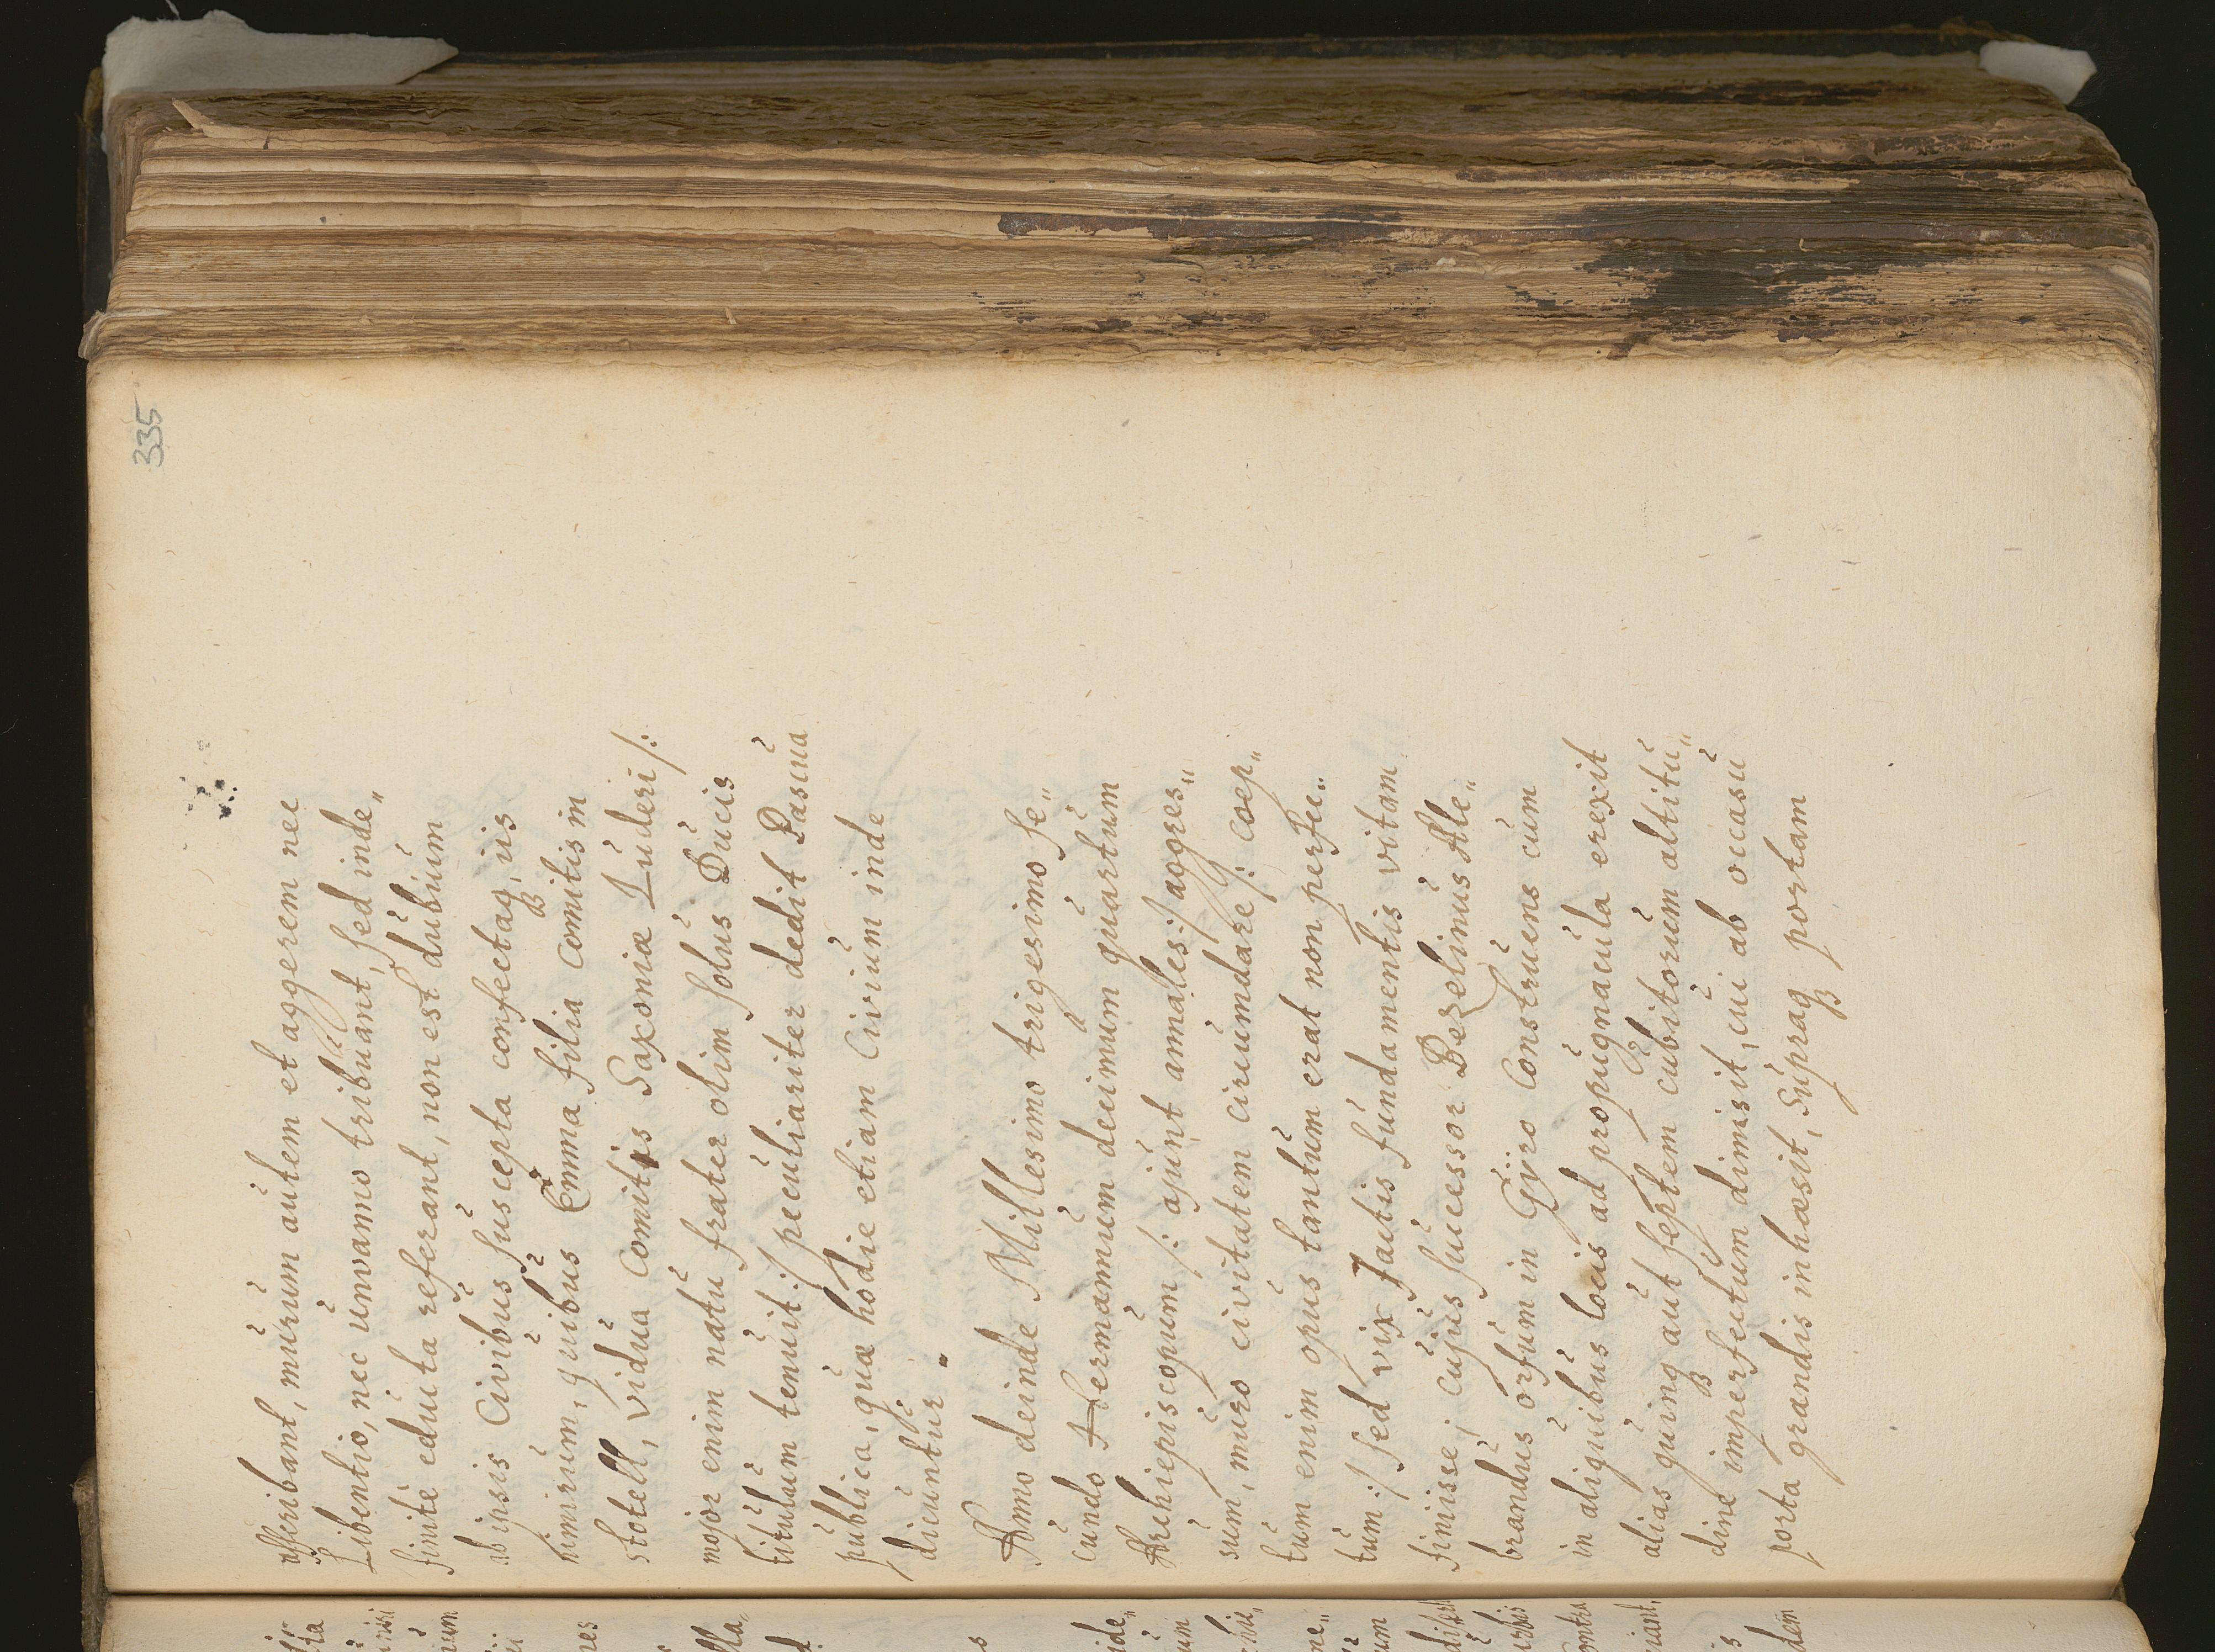 335
asscribant, murum autem et aggerem nec
Libentio, nec unvanno tribuant, sed inde„
finitè educta referant, non est dubium
ab ipsis Civibus suscepta confectaq, iis
nimirum, quibus Emma filia Comitis in
stotell, vidua Comitis Saxoniæ Luderi /:
major enim natu frater olim solus Ducis
titulum tenuit :/ peculiariter dedit Pascua
publica, quæ hodie etiam Civium inde
dicuntur.
Anno deinde Millesimo trigesimo se„
cundo Hermannum decimum quartum
Archiepiscopum /: ajunt annales :/ aggres„
sum, muro civitatem circumdare /: coep„
tum enim opus tantum erat non perfec„
tum :/ sed vix Jactis fundamentis vitam
finisse; cujus successor Bezelinus Ale„
brandus orsum in Gÿro Construens cum
in aliquibus locis ad propugnacula erexit
alias quinq aut septem cubitorum altitu„
dine imperfectum dimisit, cui ab occasu
porta grandis inhæsit, Supraq portam